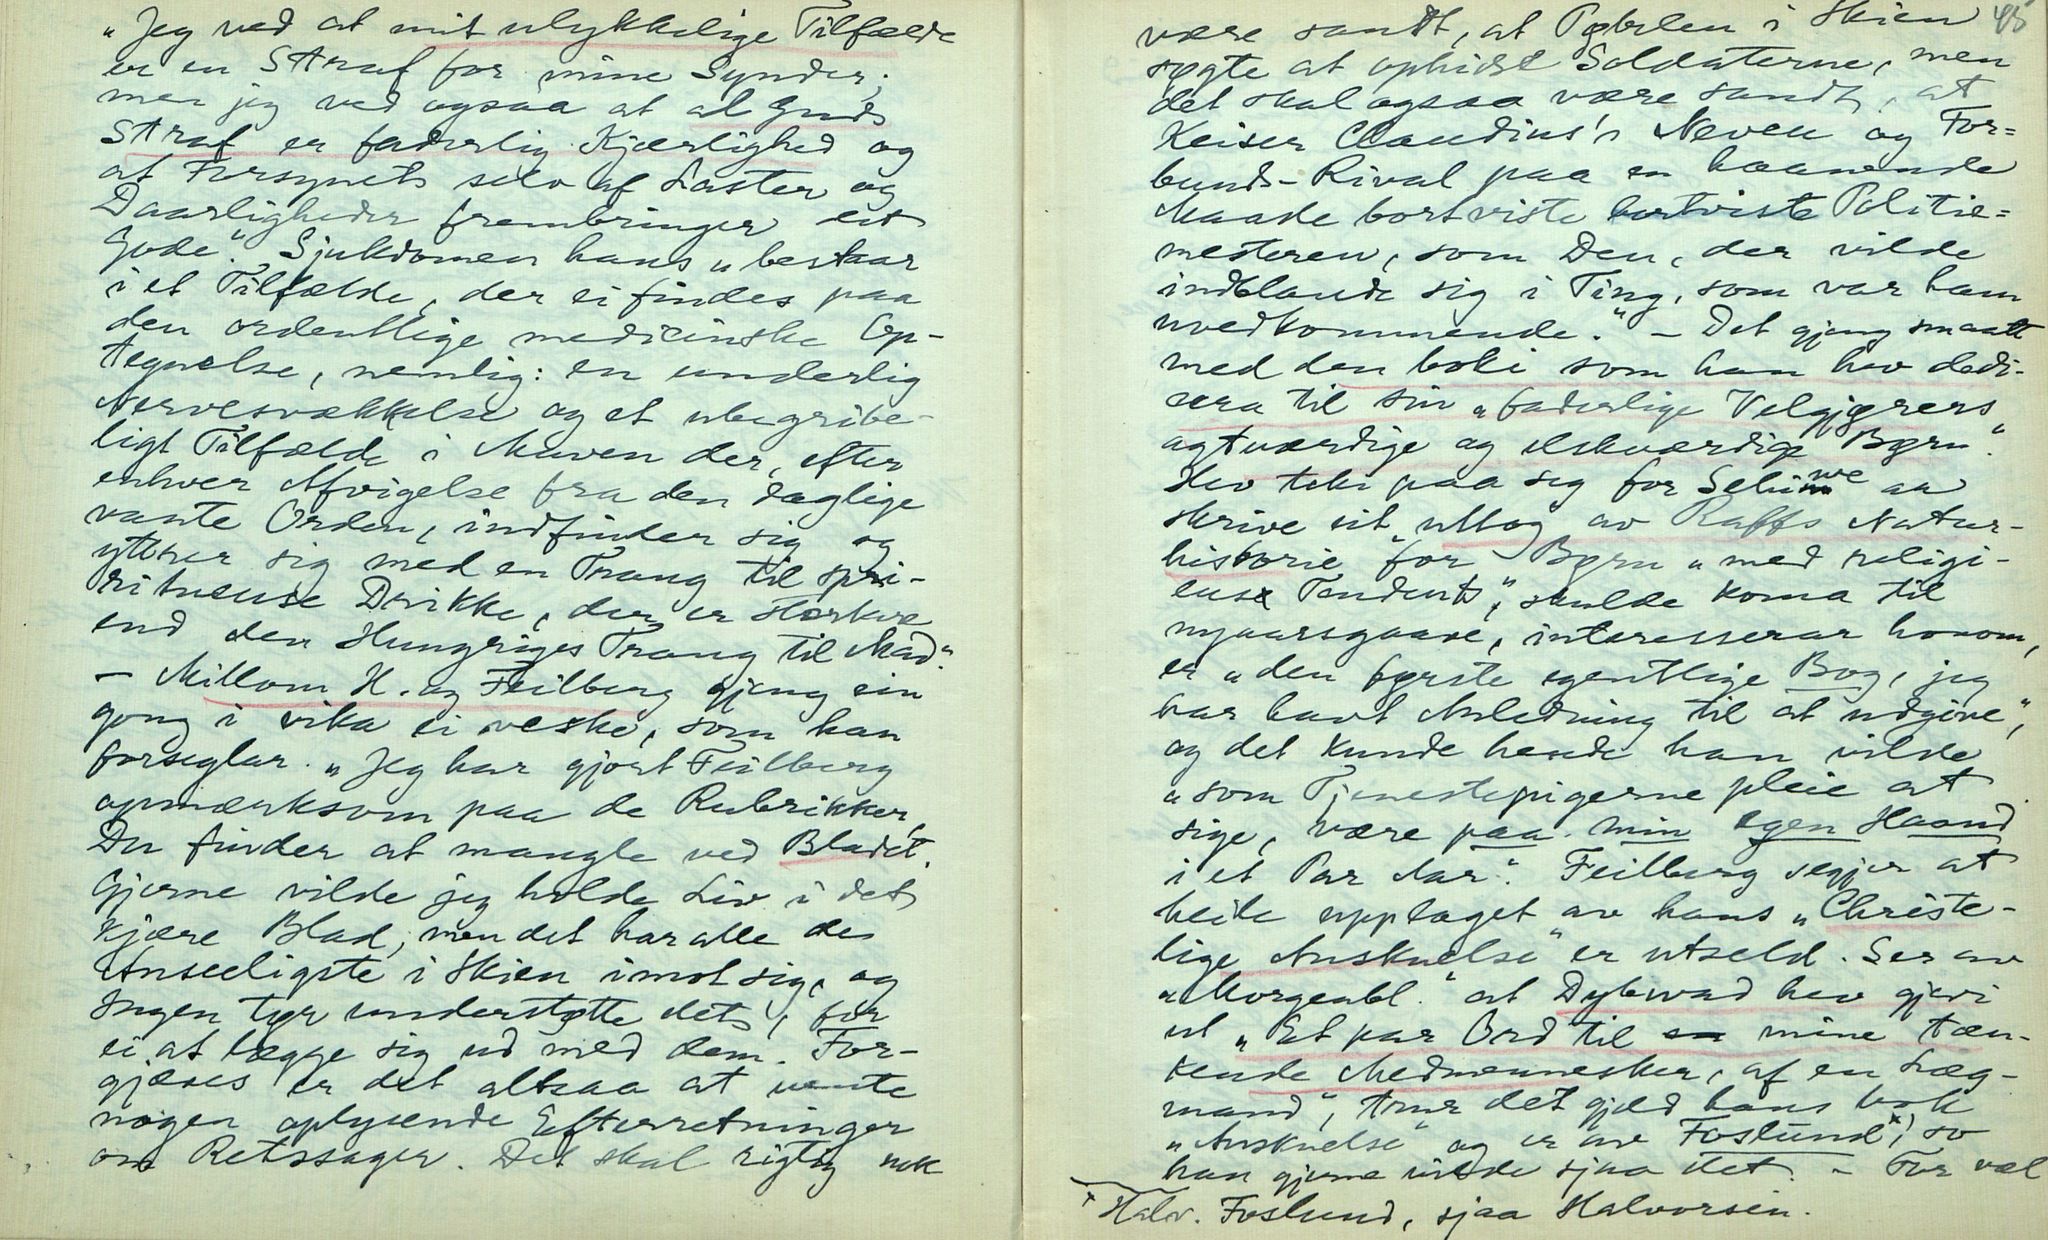 „Jeg ved at mit ulykkelige Tilfælde
er en Straf for mine Synder,
men jeg ved ogsaa at al Guds
Straf er faderlig Kjærlighed og
at Forsynets selv af Laster og
Daarligheder frembringer eit
Gode.“ Sjukdomen hans „bestaar
i et Tilfælde, der ei findes paa
den ordentlige medicinske Op-
tegnelse, nemlig: en underlig
Nervesvækkelse og et ubegribe-
ligt Tilfælde i Maven der, efter
enhver Afvigelse fra den daglige
vante Orden, indfinder sig og
yttrer sig med en Trang til spi-
ritueuse Drikke, der er stærkere
end den Hungriges Trang til Mad“.
– Millom H. og Feilberg gjeng ein
gong i vika ei veske, som han
forseglar. „Jeg har gjort Feilberg
opmærksom paa de Rubrikker,
Du finder at mangle ved Bladet.
Gjerne vilde jeg holde Liv i det
kjære Blad, men det har alle de
Anseeligste i Skien imot sig, og
Ingen tør understøtte det, for
ei at lægge sig ud med dem. For-
gjæves er det altsaa at vente
nogen oplysende Efterretninger
om Retssager. Det skal rigtig nok
45
være sandt, at Pøbelen i Skien
søgte at ophidse Soldaterne, men
det skal ogsaa være sandt, at
Keiser Claudius's Neveu og For=
bunds-Rival paa en haanende
Maade bortviste bortviste Politie=
mesteren, som Den, der vilde
indblande sig i Ting, som var ham
uvedkommende.“ – Det gjeng smaatt
med den boki som han hev dedi-
cera til sin „faderlige Velgjørers
agtværdige og elskværdige Børn“.
Hev teke paa sig for Schiwe aa
skrive eit uttog av Raffs Natur-
historie „for Børn „med religi-
euse Tendents“, skulde koma til
nyaarsgaave, interesserar honom,
er „den første egentlige Bog, jeg
har havt Anledning til at udgive“,
og det kunde hende han vilde
„som Tjenestepigerne pleie at
sige, være paa min egen Haand
i et Par Aar“. Feilberg segjer at
heile upplaget av hans „Christe-
lige Anskuelse“ er utseld. Ser av
„Morgenbl.“ at Dybwad hev gjevi
ut „Et par Ord til mine tæn-
kende Medmennesker, af en Læg-
mand“, trur det gjeld hans bok
„Anskuelse“ og er av Foslund*, so
han gjerne vilde sjaa det. – For vel
* Halv. Foslund, sjaa Halvorsen.